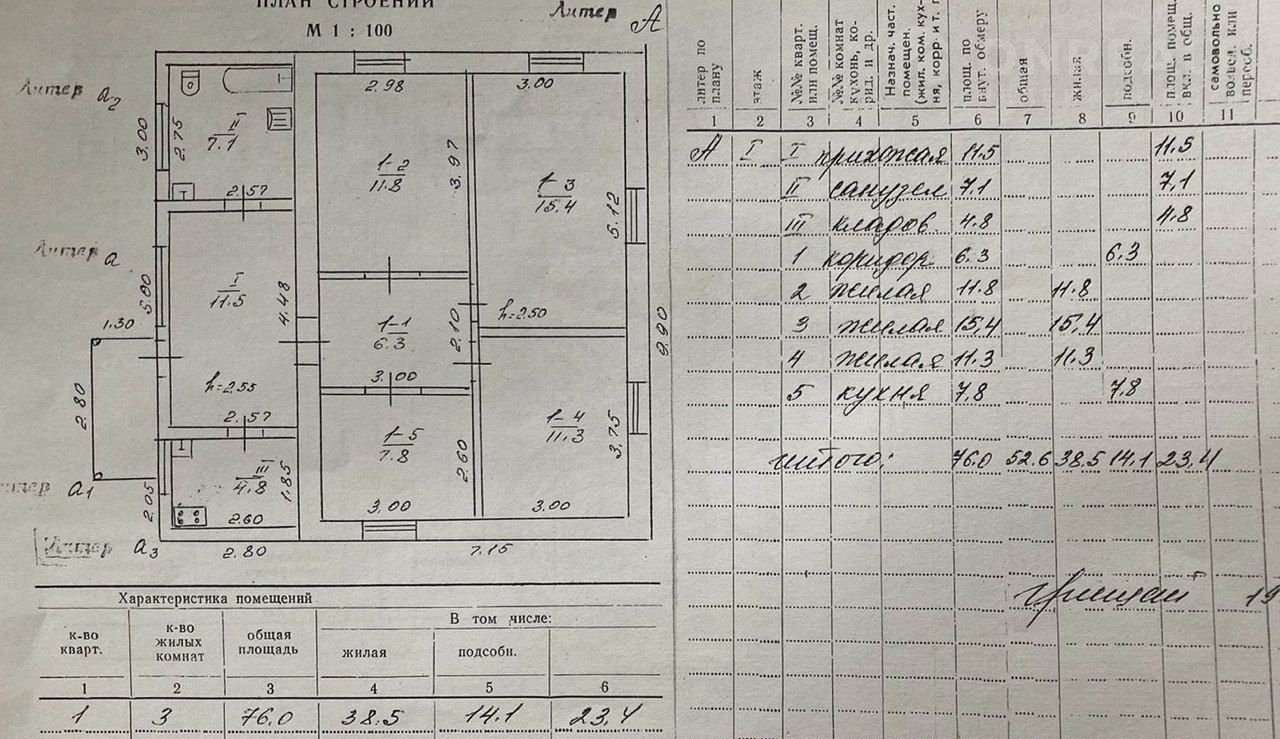 ПЛАН СТРОЕНИЙ
М 1 : 100
Литер А
Литер а2
3.00
2.75
II
7.1
2.57
2.98
1-2
11.8
3.97
3.00
1-3
15.4
5.12
Литер а
5.00
I
11.5
4.48
h=2.55
2.57
1.30
2.80
1-1
6.3
2.10
3.00
h=2.50
9.90
1-5
7.8
2.60
3.00
1-4
11.3
3.75
3.00
Литер а1
2.05
III
4.8
1.85
2.60
Литер а3
2.80
7.15
Характеристика помещений
В том числе:
к-во кварт.
к-во жилых комнат
общая площадь
жилая
подсобн.
1 2 3 4 5 6
1 3 76.0 38.5 14.1 23,4
литер по плану
этаж
№№ кварт. или помещ.
№№ комнат кухонь, ко- рид. и др.
Назнач. част. помещен. (жил. ком. кух- ня, корр. и т. п
площ. по внут. обмеру
общая
жилая
подсобн.
площ. помещ. вкл. в общ.
самовольно возвел. или переоб.
1 2 3 4 5 6 7 8 9 10 11
А I I прихожая 11.5 11.5
II санузел 7.1 7,1
III кладов 4.8 4.8
1 коридор 6.3 6.3
2 жилая 11.8 11.8
3 жилая 15,4 15,4
4 жилая 11.3 11.3
5 кухня 7.8 7.8
итого: 76.0 52.6 38.5 14.1 23,4
19